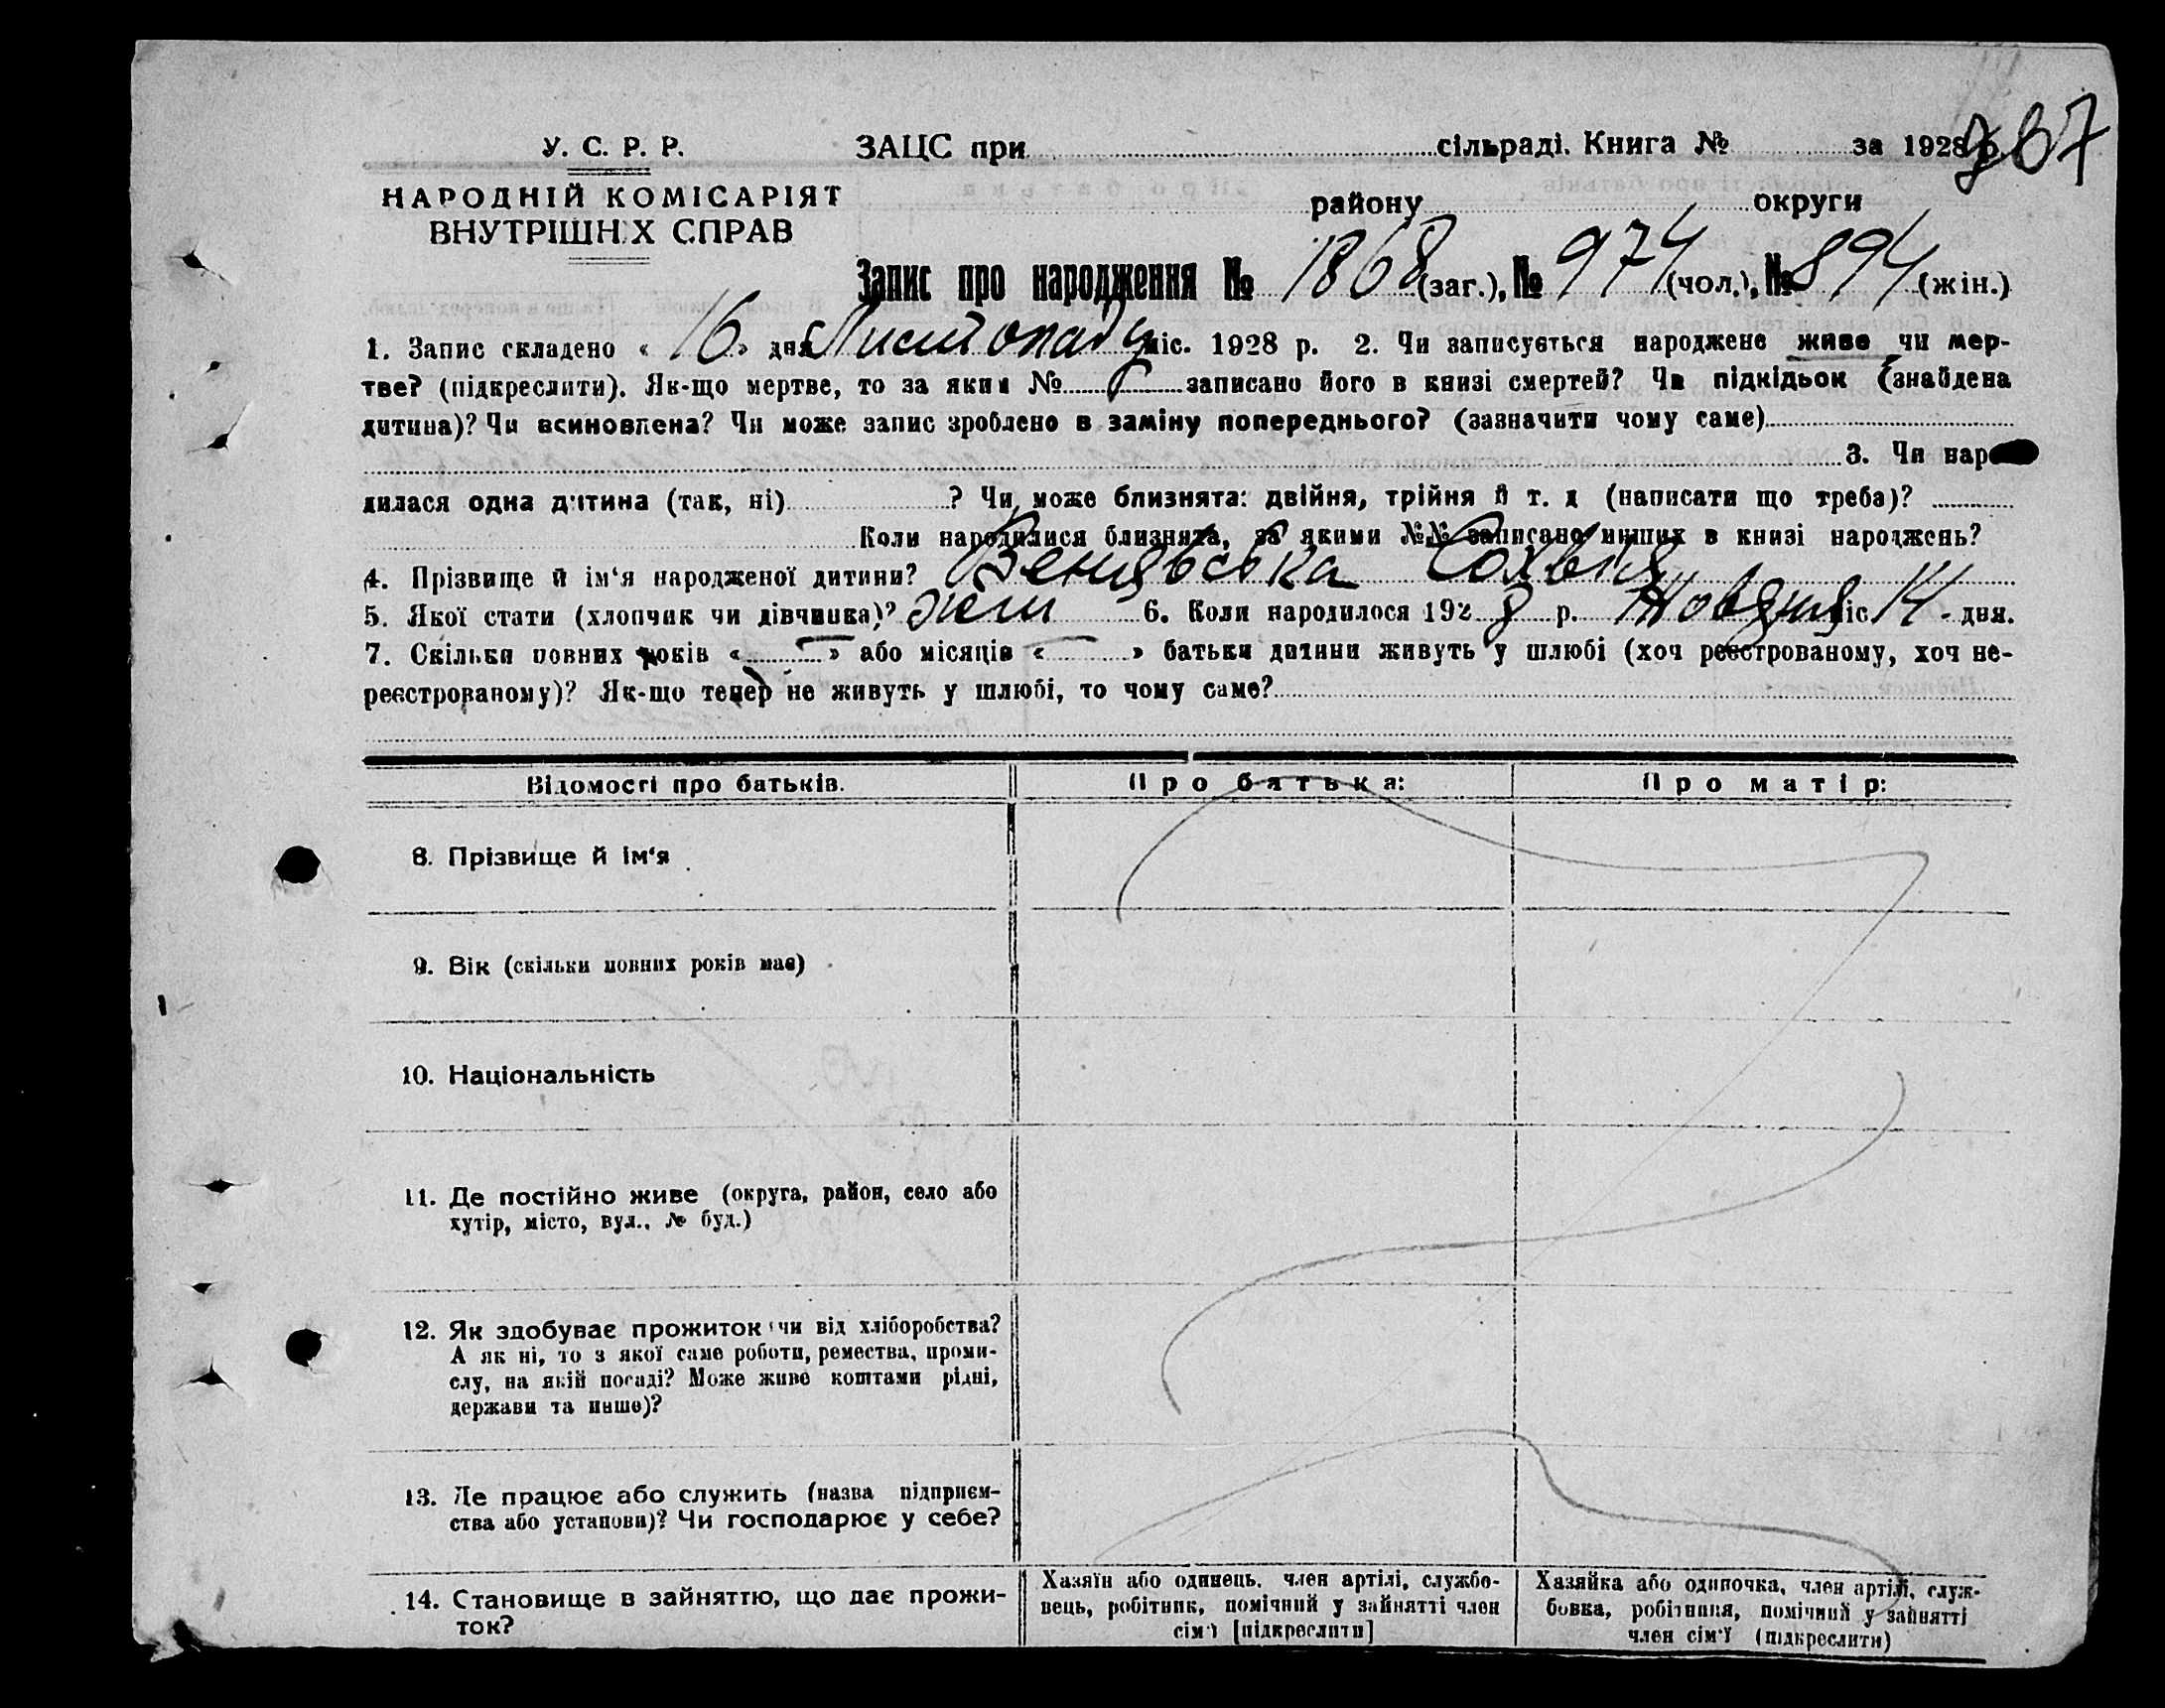 207
У. С. Р. Р. ЗАЦС при сільраді. Книга № за 1928 р.
НАРОДНІЙ КОМІСАРІЯТ
ВНУТРІШНІХ СПРАВ
району округи
Запис про народження № 1868 (заг.), № 974 (чол.), № 894 (жін.)
1. Запис складено « 16 » дня Листопаду міс. 1928 р. 2. Чи записується народжене живе чи мер-
тве? (підкреслити). Як-що мертве, то за яким № записано його в книзі смертей? Чи підкідьок (знайдена
дитина)? Чи всиновлена? Чи може запис зроблено в заміну попереднього? (зазначити чому саме)
3. Чи наро
дилася одна дитина (так, ні) ? Чи може близнята: двійня, трійня й т. д (написати що треба)?
Коли народилися близнята, за якими №№ записано инших в книзі народжень?
4. Прізвище й ім‘я народженої дитини?
5. Якої стати (хлопчик чи дівчинка)? жін 6. Коли народилося 1928 р. Жовтня міс. 14 дня.
7. Скільки повних років « — » або місяців « — » батьки дитини живуть у шлюбі (хоч реєстрованому, хоч не-
реєстрованому)? Як-що тепер не живуть у шлюбі, то чому саме?
Відомості про батьків. Про батька: Про матір:
8. Прізвище й ім‘я
9. Вік (скільки повних років має)
10. Національність
11. Де постійно живе (округа, район, село або
хутір, місто, вул., № буд.)
12. Як здобуває прожиток чи від хліборобства?
А як ні, то з якої саме роботи, ремества, проми-
слу, на якій посаді? Може живе коштами рідні,
держави та инше)?
13. Де працює або служить (назва підприєм-
ства або установи)? Чи господарює у себе?
14. Становище в зайняттю, що дає прожи-
ток?
Хазяїн або одинець, член артілі, службо-
вець, робітник, помічний у зайнятті член
сім‘ї [підкреслити]
Хазяйка або одиночка, член артілі, служ-
бовка, робітниця, помічний у зайнятті
член сім‘ї (підкреслити)